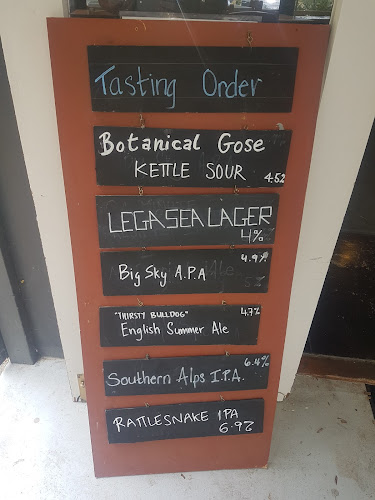 Tasting Order
Botanical Gose
KETTLE SOUR 4.5%
LEGASEA LAGER
4%
4.9%
Big Sky A.P.A
"THIRSTY BULLDOG" 4.7%
English Summer Ale
6.4%
Southern Alps I.P.A.
RATTLESNAKE IPA
6.9%